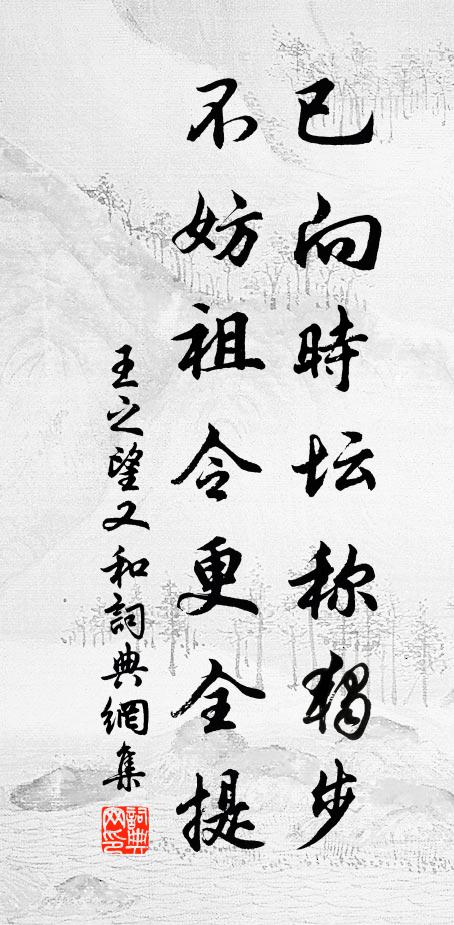 已向時坛称獨步
不妨祖令更全提
王之望又和詞典網集
詞典网印